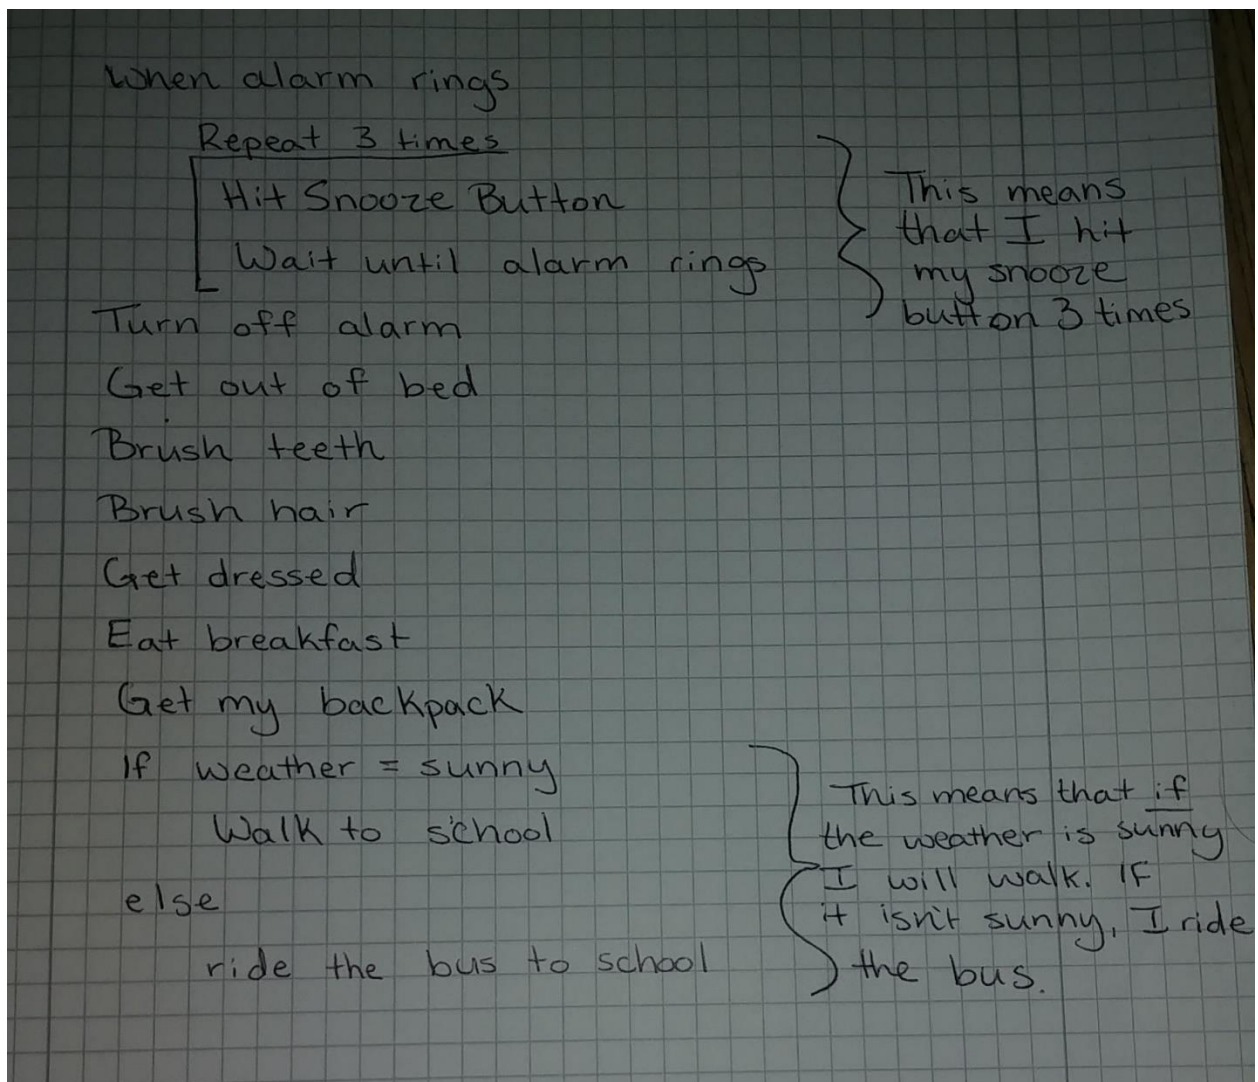 When alarm rings
Repeat 3 times
Hit Snooze Button
Wait until alarm rings
This means
that I hit
my snooze
button 3 times
Turn off alarm
Get out of bed
Brush teeth
Brush hair
Get dressed
Eat breakfast
Get my backpack
If weather = sunny
Walk to school
else
ride the bus to school
This means that if
the weather is sunny
I will walk. If
it isn't sunny, I ride
the bus.